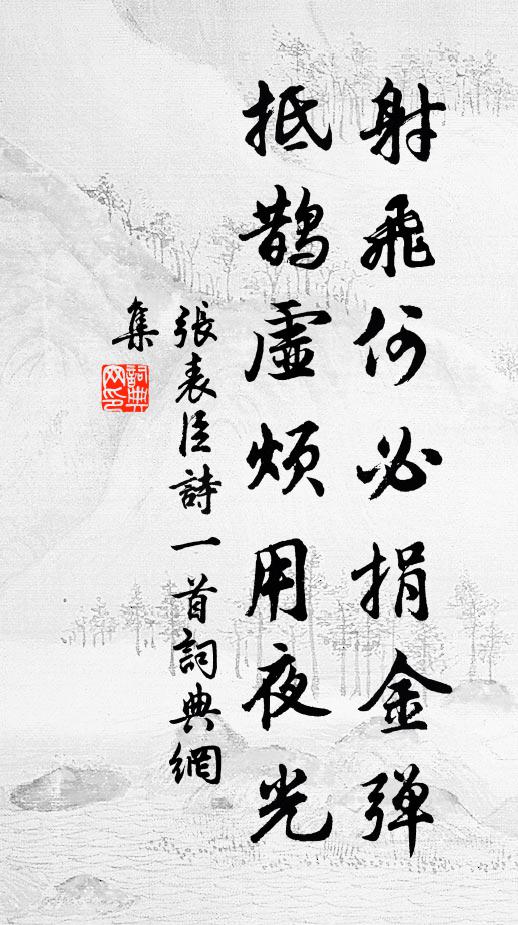 射飛何必捐金弹
抵鵲虛煩用夜光
張表臣詩一首詞典網
集
詞典
网印